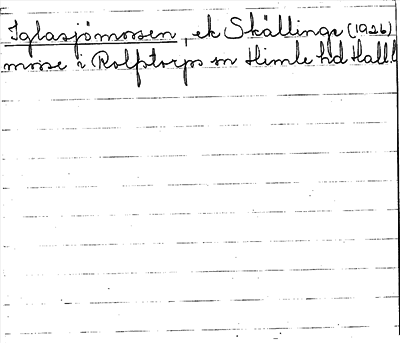 Iglasjömossen, ek Skällinge (1926)
mosse i Rolfstorps sn Himle hd Hall.